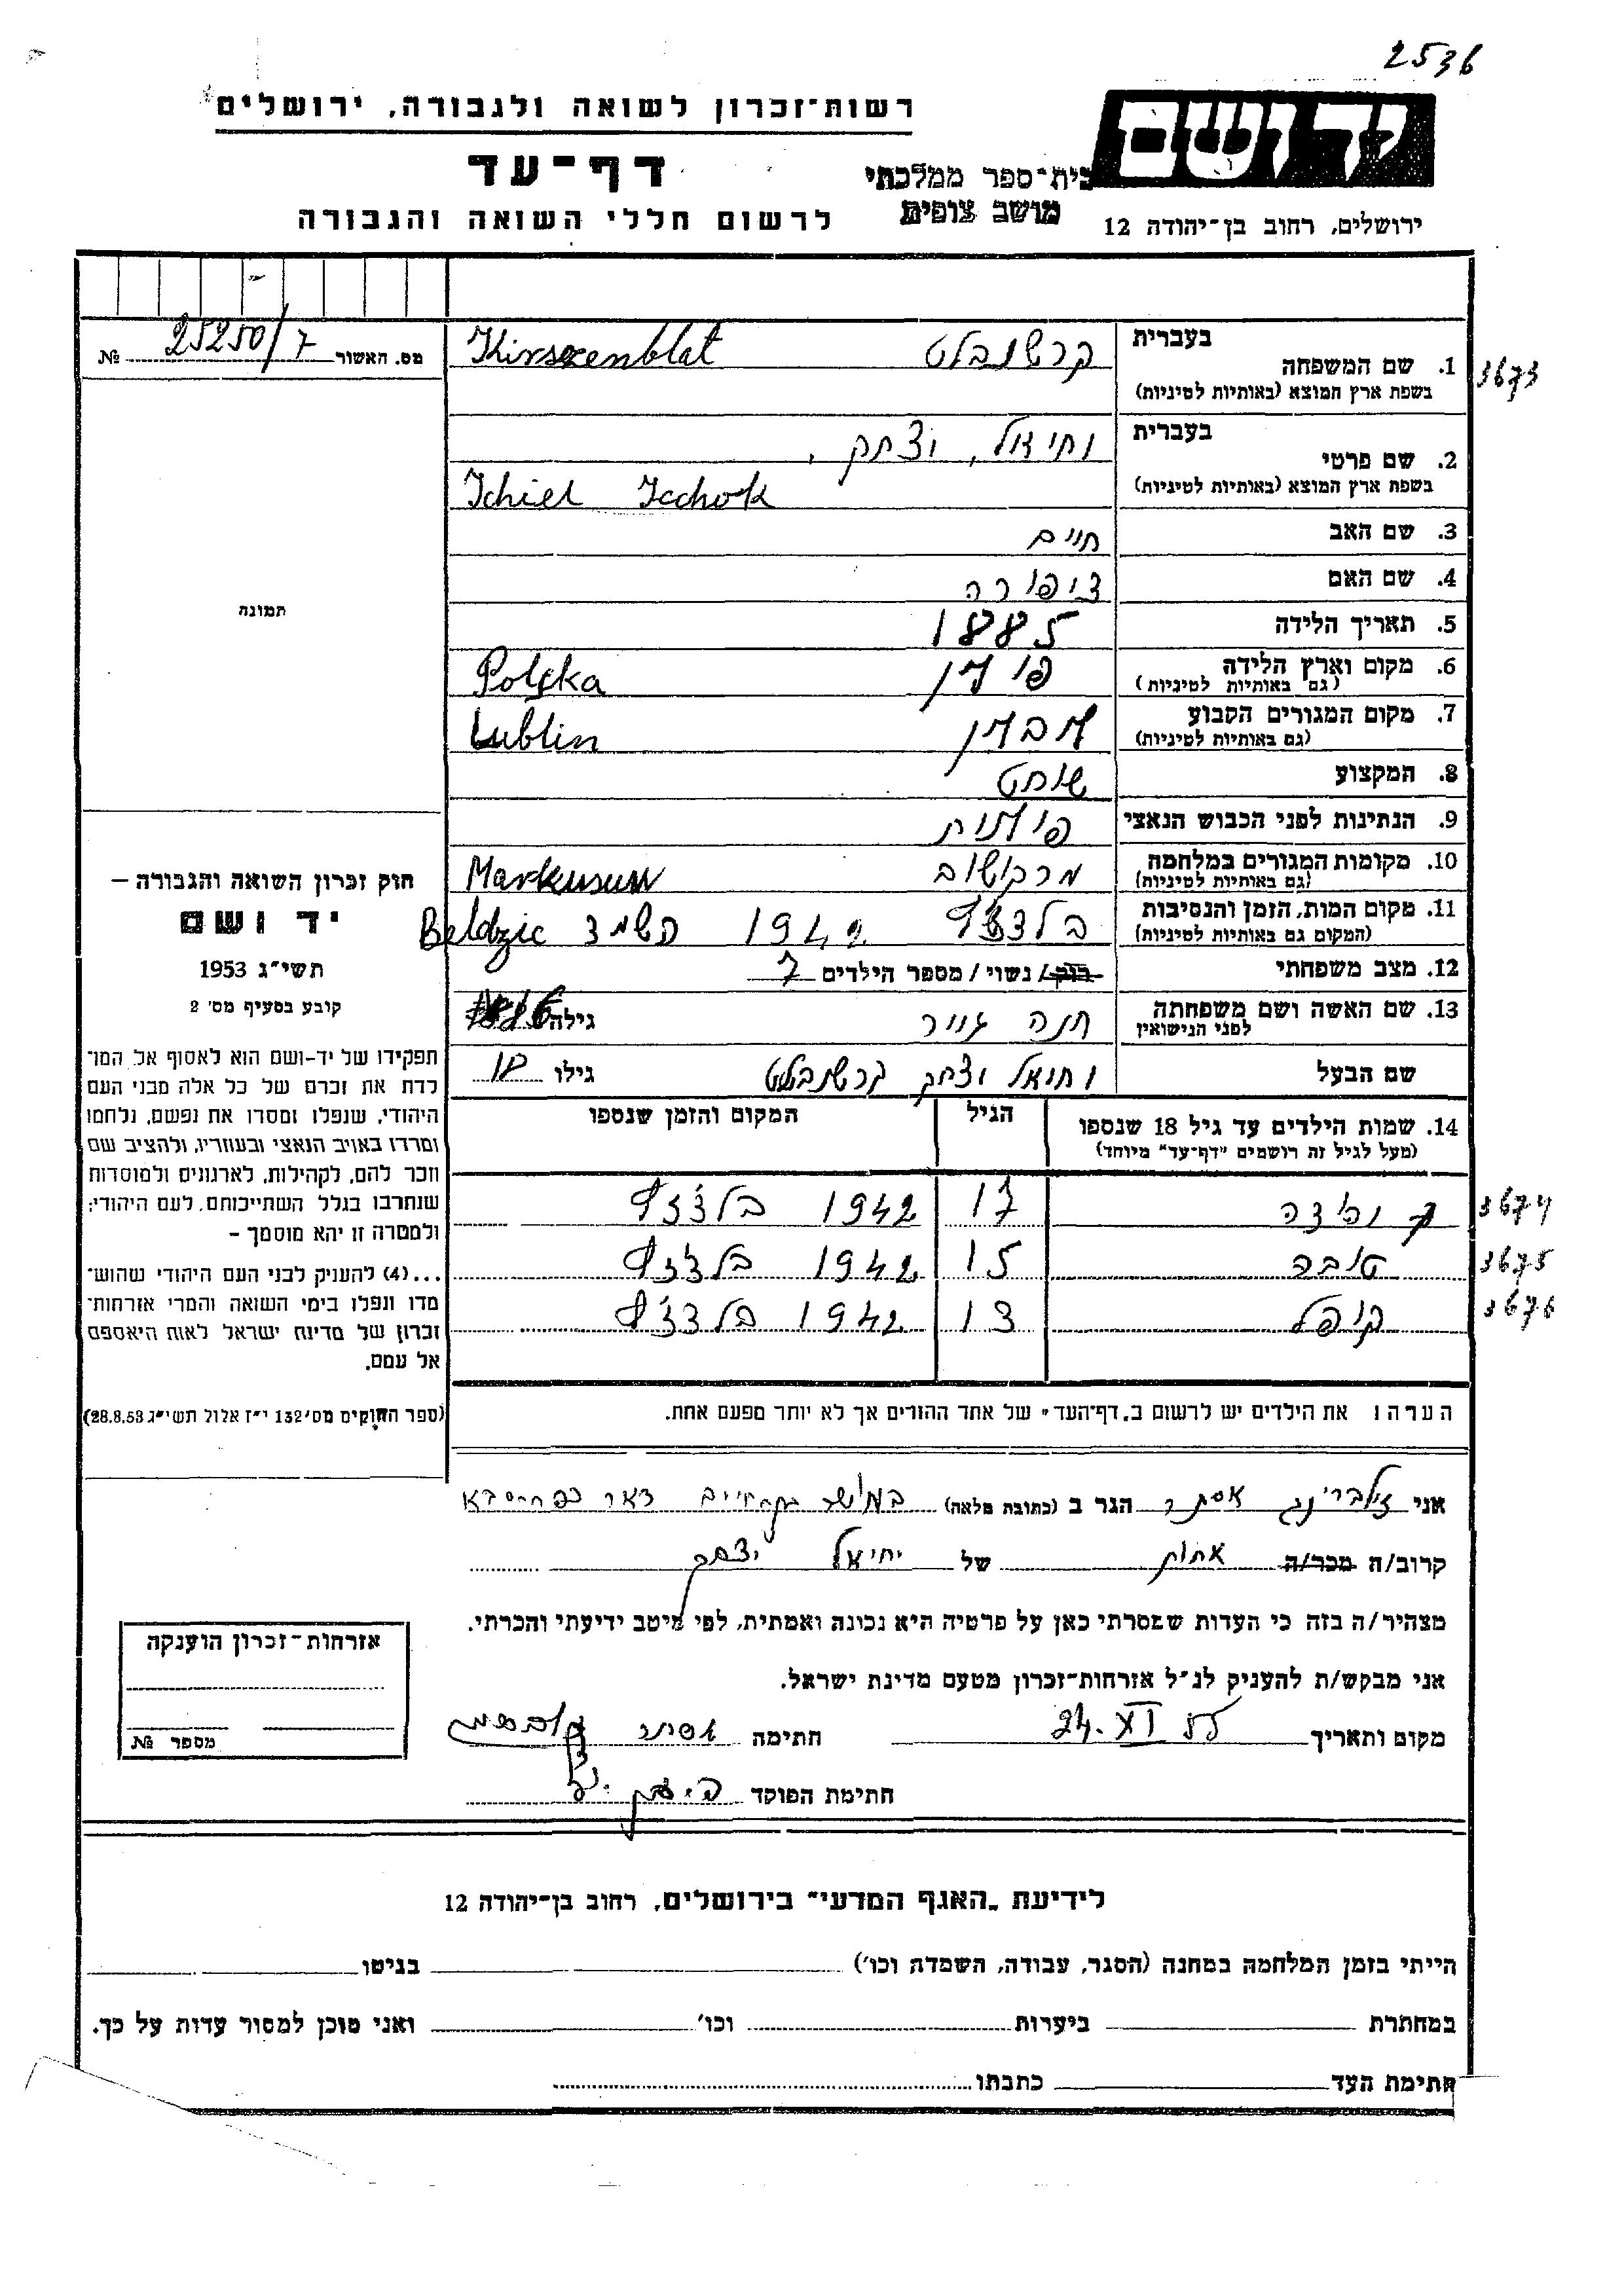 2536
יד ושם
רשות־זכרון לשואה ולגבורה, ירושלים
דף־עד
בית־ספר ממלכתי
לרשום חללי השואה והגבורה
מושב צופית
ירושלים, רחוב בן־יהודה 12
מס. האשור 25250/7 №
בעברית
1. שם המשפחה קרשנבלט Kirszenblat 3673
בשפת ארץ המוצא (באותיות לטיניות)
בעברית
2. שם פרטי יחיאל, יצחק,
בשפת ארץ המוצא (באותיות לטיניות) Ichiel Icchok
3. שם האב חיים
4. שם האם ציפורה
5. תאריך הלידה 1885
6. מקום וארץ הלידה פולין Polska
(גם באותיות לטיניות)
7. מקום המגורים הקבוע לבלין Lublin
(גם באותיות לטיניות)
8. המקצוע שוחט
9. הנתינות לפני הכבוש הנאצי פולנית
10. מקומות המגורים במלחמה מרקושוב Markuszuw
(גם באותיות לטיניות)
11. מקום המות, הזמן והנסיבות 1942 השמד Beldzic
(המקום גם באותיות לטיניות)
12. מצב משפחתי רוק/ נשוי / מספר הילדים 7
13. שם האשה ושם משפחתה חנה גילה
לפני הנישואין
שם הבעל יחיאל יצחק קרשנבלט גילו
14. שמות הילדים עד גיל 18 שנספו הגיל המקום והזמן שנספו
(מעל לגיל זה רושמים "דף־עד" מיוחד)
17 1942 3674
טובה 15 1942 3675
קופל 13 1942 3676
הערה: את הילדים יש לרשום ב„דף־העד" של אחד ההורים אך לא יותר מפעם אחת.
תמונה
חוק זכרון השואה והגבורה —
יד ושם
תשי"ג 1953
קובע בסעיף מס' 2
תפקידו של יד-ושם הוא לאסוף אל המו־
לדת את זכרם של כל אלה מבני העם
היהודי, שנפלו ומסרו את נפשם, נלחמו
ומרדו באויב הנאצי ובעוזריו, ולהציב שם
וזכר להם, לקהילות, לארגונים ולמוסדות
שנחרבו בגלל השתייכותם לעם היהודי;
ולמטרה זו יהא מוסמך –
...(4) להעניק לבני העם היהודי שהוש־
מדו ונפלו בימי השואה והמרי אזרחות־
זכרון של מדינת ישראל לאות היאספם
אל עמם.
(ספר החוקים מס' 132 י"ז אלול תשי"ג 28.8.53)
אני זילברינג אסתר הגר ב (כתובת מלאה)
קרוב/ה מכר/ה אחות של יחיאל יצחק
מצהיר/ה בזה כי העדות שמסרתי כאן על פרטיה היא נכונה ואמתית, לפי מיטב ידיעתי והכרתי.
אני מבקש/ת להעניק לנ"ל אזרחות־זכרון מטעם מדינת ישראל.
מקום ותאריך 24. XI 55 חתימה אסתר
חתימת הפוקד
אזרחות־זכרון הוענקה
מספר №
לידיעת „האגף המדעי" בירושלים, רחוב בן־יהודה 12
הייתי בזמן המלחמה במחנה (הסגר, עבודה, השמדה וכו') בגיטו
במחתרת ביערות וכו' ואני מוכן למסור עדות על כך.
חתימת העד כתבתו